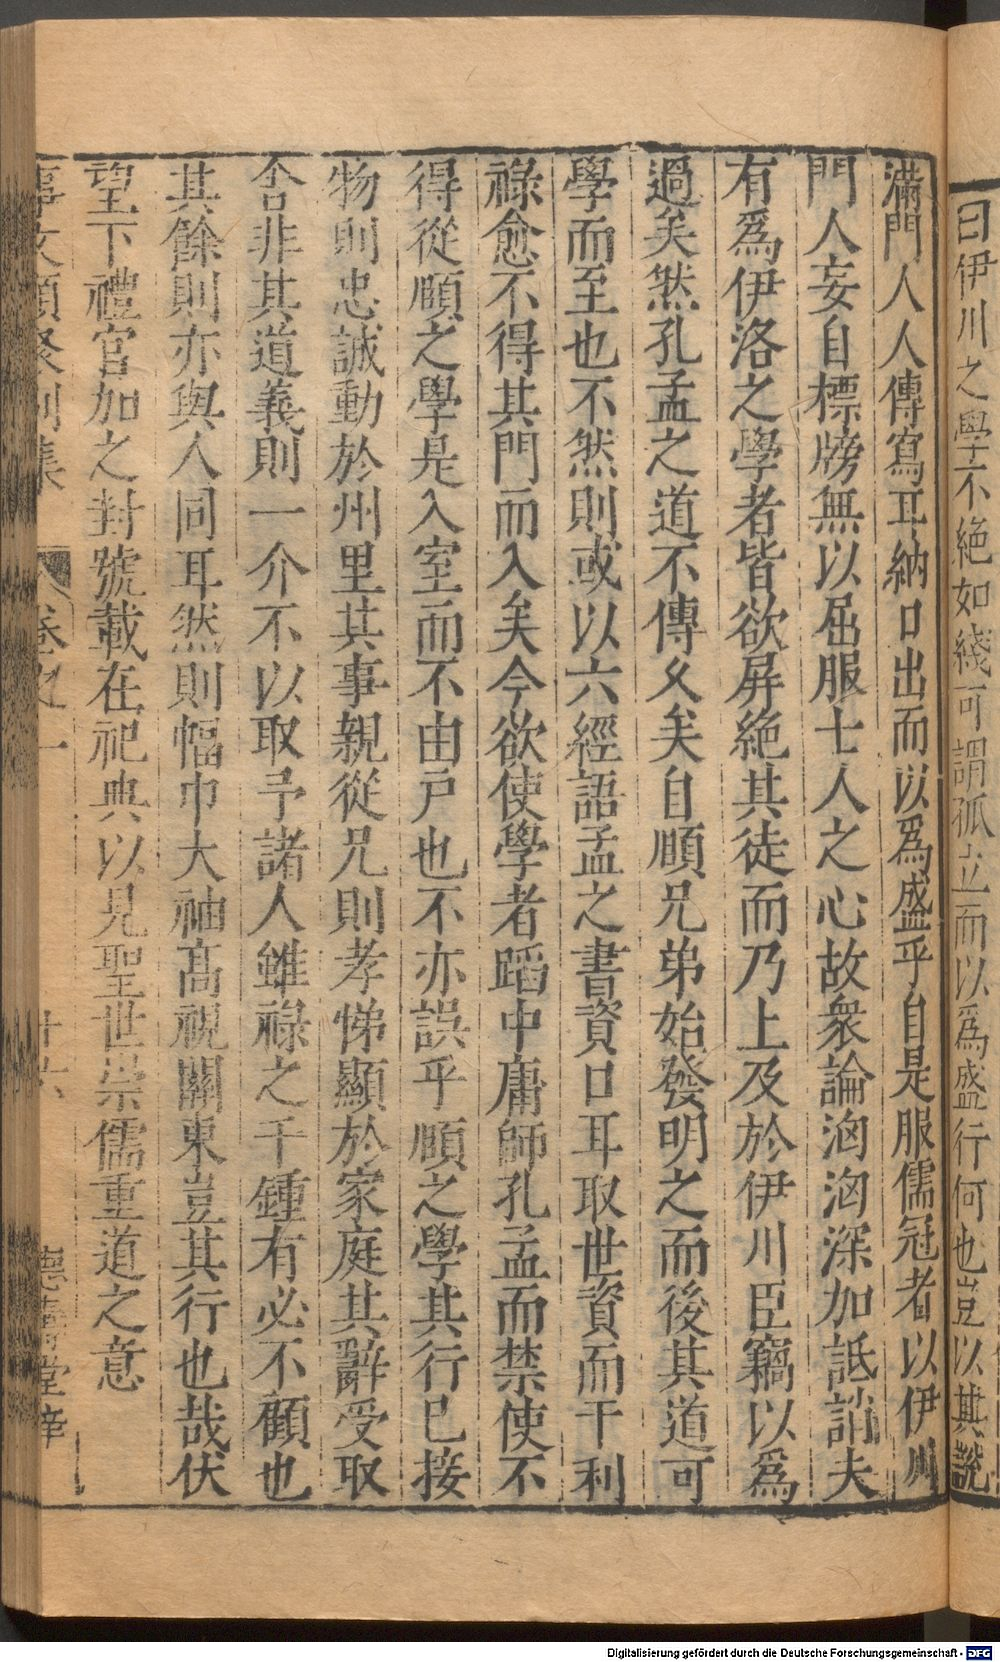 曰伊川之學不絶如綫可謂孤立而以爲盛行何也豈以其說
滿門人人傳寫耳納口出而以爲盛乎自是服儒冠者以伊川
門人妄自標牓無以屈服士人之心故衆論洶洶深加詆誚夫
有爲伊洛之學者皆欲屏絶其徒而乃上及於伊川臣竊以爲
過矣然孔孟之道不傳久矣自頤兄弟始發明之而後其道可
學而至也不然則或以六經語孟之書資口耳取世資而干利
祿愈不得其門而入矣今欲使學者蹈中庸師孔孟而禁使不
得從頤之學是入室而不由戸也不亦誤乎頤之學其行已接
物則忠誠動於州里其事親從兄則孝悌顯於家庭其辭受取
舍非其道義則一介不以取予諸人雖祿之千鍾有必不顧也
其餘則亦與人同耳然則幅巾大袖高視闊東豈其行也哉伏
望下禮官加之封號載在祀典以見聖世崇儒重道之意
事文類聚别集 卷之一 十六 德壽堂梓
Digitalisierung gefördert durch die Deutsche Forschungsgemeinschaft - DFG